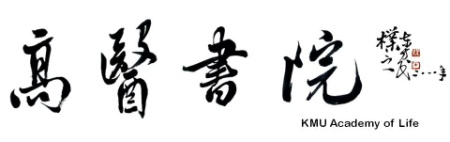 高醫書院
KMU Academy of Life